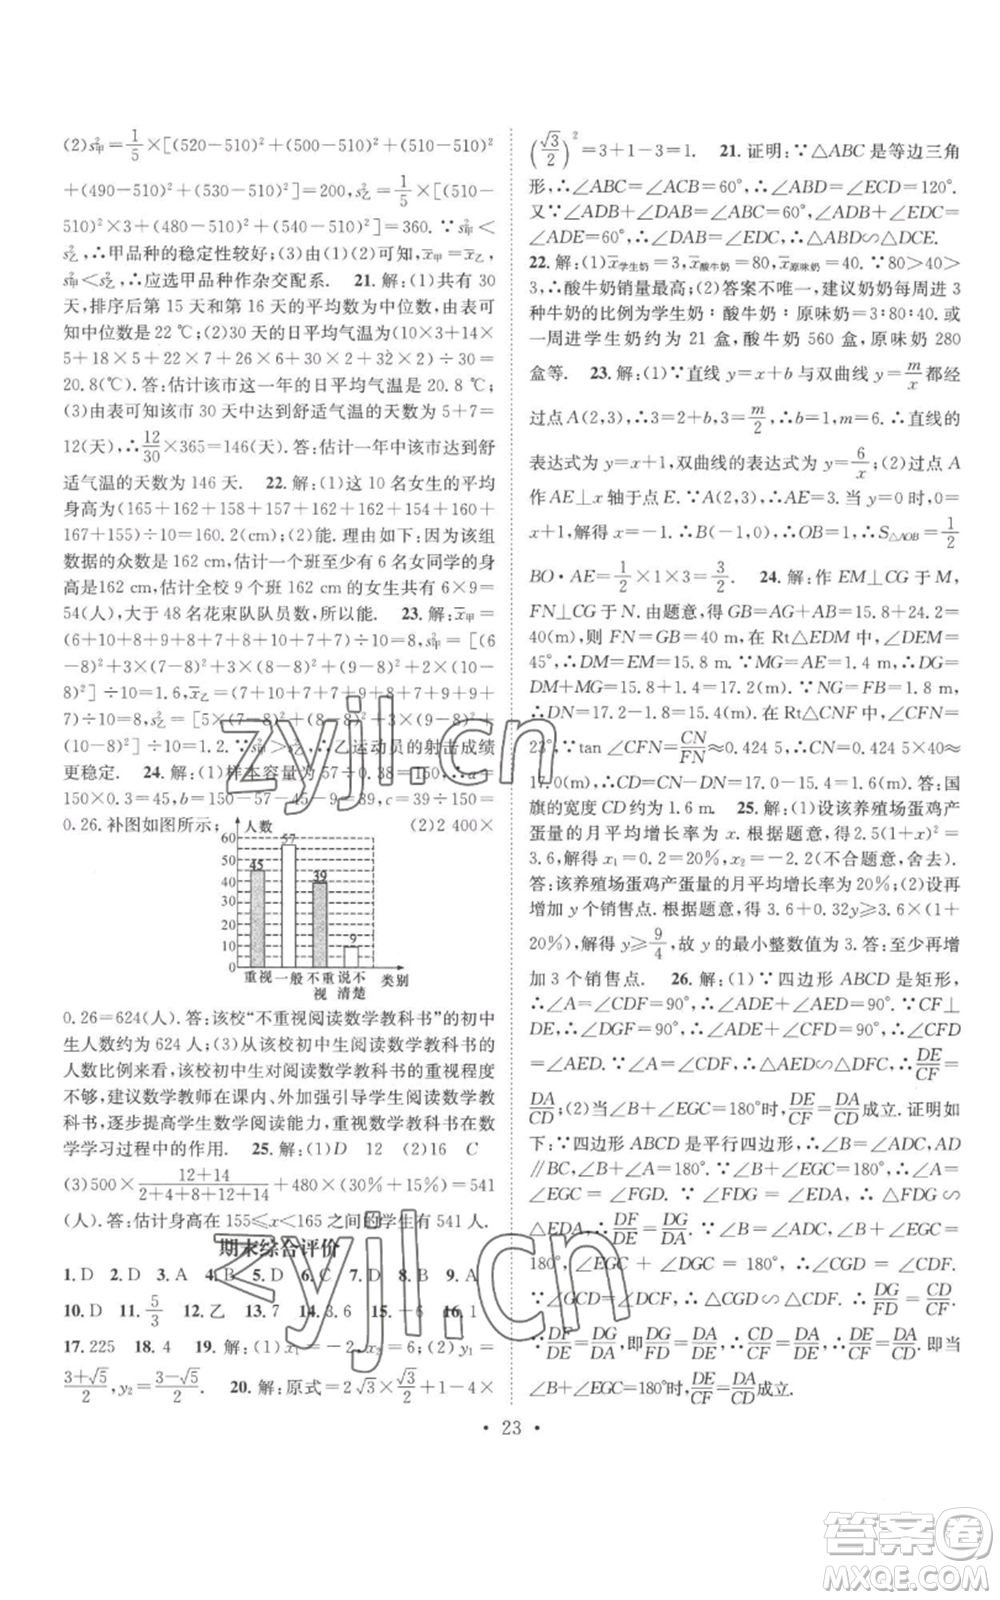 (2)s²甲=1/5×[(520-510)²+(500-510)²
+(490-510)²+(530-510)²]=200,s²乙=1/5×[(510-
510)²×3+(480-510)²+(540-510)²]=360.∵s²甲<
s²乙,∴甲品种的稳定性较好;(3)由(1)(2)可知,x̄甲=x̄乙,
s²甲<s²乙,∴应选甲品种作杂交配系. 21.解:(1)共有30
天,排序后第15天和第16天的平均数为中位数,由表可
知中位数为22 ℃;(2)30天的日平均气温为(10×3+14×
5+18×5+22×7+26×6+30×2+32×2)÷30=
20.8(℃).答:估计该市这一年的日平均气温是20.8 ℃;
(3)由表可知该市30天中达到舒适气温的天数为5+7=
12(天),∴12/30×365=146(天).答:估计一年中该市达到舒
适气温的天数为146天. 22.解:(1)这10名女生的平均
身高为(165+162+158+157+162+162+154+160+
167+155)÷10=160.2(cm);(2)能.理由如下:∵该组
数据的众数是162 cm,估计一个班至少有6名女同学的身
高是162 cm,估计全校9个班162 cm的女生共有6×9=
54(人),大于48名花束队队员数,所以能. 23.解:x̄甲=
(6+10+8+9+8+7+8+10+7+7)÷10=8,s²甲=[(6
-8)²+(10-8)²+(8-8)²+⋯+(7-8)²+(10-
8)²]÷10=1.6,x̄乙=(7+7+8+8+9+7+8+9+10+
7)÷10=8,s²乙=[5×(7-8)²+(8-8)²+⋯+
(10-8)²]÷10=1.2.∵s²甲>s²乙,∴乙运动员的射击成绩
更稳定. 24.解:(1)样本容量为57÷0.38=150,∴a=
150×0.3=45,b=150-57-45-9=39,c=39÷150=
0.26.补图如图所示; (2)2 400×
人数
60
50
40
30
20
10
0
45
57
39
9
重视 一般 不重视 说不清楚 类别
0.26=624(人).答:该校“不重视阅读数学教科书”的初中
生人数约为624人;(3)从该校初中生阅读数学教科书的
人数比例来看,该校初中生对阅读数学教科书的重视程度
不够,建议数学教师在课内、外加强引导学生阅读数学教
科书,逐步提高学生数学阅读能力,重视数学教科书在数
学学习过程中的作用. 25.解:(1)D 12 (2)16 C
(3)500×(12+14)/(2+4+8+12+14)+480×(30%+15%)=541
(人).答:估计身高在155≤x<165之间的学生有541人.
期末综合评价
1.D 2.D 3.A 4.B 5.D 6.C 7.B 8.B 9.A
10.D 11.5/3 12.乙 13.7 14.3.6 15.-6 16.1
17.225 18.4 19.解:(1)x₁=-1,x₂=6;(2)y₁=
(3+√5)/2,y₂=(3-√5)/2. 20.解:原式=2√3×√3/2+1-4×
(√3/2)²=3+1-3=1. 21.证明:∵△ABC是等边三角
形,∴∠ABC=∠ACB=60°,∴∠ABD=∠ECD=120°.
又∵∠ADB+∠DAB=∠ABC=60°,∠ADB+∠EDC=
∠ADE=60°,∴∠DAB=∠EDC,∴△ABD∽△DCE.
22.解:(1)x̄学生奶=3,x̄酸牛奶=80,x̄原味奶=40.∵80>40>
3,∴酸牛奶销量最高;(2)答案不唯一,建议奶奶每周进3
种牛奶的比例为学生奶∶酸牛奶∶原味奶=3∶80∶40.或
一周进学生奶约为21盒,酸牛奶560盒,原味奶280
盒等. 23.解:(1)∵直线y=x+b与双曲线y=m/x都经
过点A(2,3),∴3=2+b,3=m/2,∴b=1,m=6.∴直线的
表达式为y=x+1,双曲线的表达式为y=6/x;(2)过点A
作AE⊥x轴于点E.∵A(2,3),∴AE=3.当y=0时,0=
x+1,解得x=-1.∴B(-1,0),∴OB=1;∴S△AOB=1/2
BO·AE=1/2×1×3=3/2. 24.解:作EM⊥CG于M,
FN⊥CG于N.由题意,得GB=AG+AB=15.8+24.2=
40(m),则FN=GB=40 m.在Rt△EDM中,∠DEM=
45°,∴DM=EM=15.8 m.∵MG=AE=1.4 m,∴DG=
DM+MG=15.8+1.4=17.2(m).∵NG=FB=1.8 m,
∴DN=17.2-1.8=15.4(m).在Rt△CNF中,∠CFN=
23°,∵tan ∠CFN=CN/FN≈0.424 5,∴CN=0.424 5×40≈
17.0(m),∴CD=CN-DN=17.0-15.4=1.6(m).答:国
旗的宽度CD约为1.6 m. 25.解:(1)设该养殖场蛋鸡产
蛋量的月平均增长率为x.根据题意,得2.5(1+x)²=
3.6,解得x₁=0.2=20%,x₂=-2.2(不合题意,舍去).
答:该养殖场蛋鸡产蛋量的月平均增长率为20%;(2)设再
增加y个销售点.根据题意,得3.6+0.32y≥3.6×(1+
20%),解得y≥9/4,故y的最小整数值为3.答:至少再增
加3个销售点. 26.解:(1)∵四边形ABCD是矩形,
∴∠A=∠CDF=90°,∴∠ADE+∠AED=90°.∵CF⊥
DE,∴∠DGF=90°,∴∠ADE+∠CFD=90°,∴∠CFD
=∠AED.∵∠A=∠CDF,∴△AED∽△DFC,∴DE/CF=
DA/CD;(2)当∠B+∠EGC=180°时,DE/CF=DA/CD成立.证明如
下:∵四边形ABCD是平行四边形,∴∠B=∠ADC,AD
∥BC,∴∠B+∠A=180°.∵∠B+∠EGC=180°,∴∠A
=∠EGC=∠FGD.∵∠FDG=∠EDA,∴△DFG∽
△DEA,∴DF/DE=DG/DA.∵∠B=∠ADC,∠B+∠EGC=
180°,∠EGC=∠DGF,∴∠CGD=180°,∴∠CGD=
∠CDF.∵∠GCD=∠DCF,∴△CGD∽△CDF,∴DG/FD=CD/CF.
∵DF/DE=DG/DA,即DG/DF=DA/DE,∴CD/CF=DA/DE,∴DE/CF=DA/CD.即当
∠B+∠EGC=180°时,DE/CF=DA/CD成立.
• 23 •
zyjl.cn
zyjl.cn
答案卷
MXQE.COM